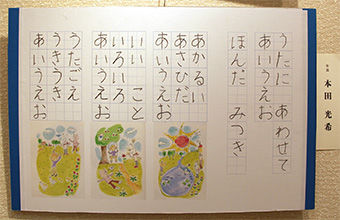 うたに あわせて
あいうえお
ほんだ みつき
あかるい
あさひだ
あいうえお
いい こと
いろいろ
あいうえお
うたごえ
うきうき
あいうえお
本田 光希